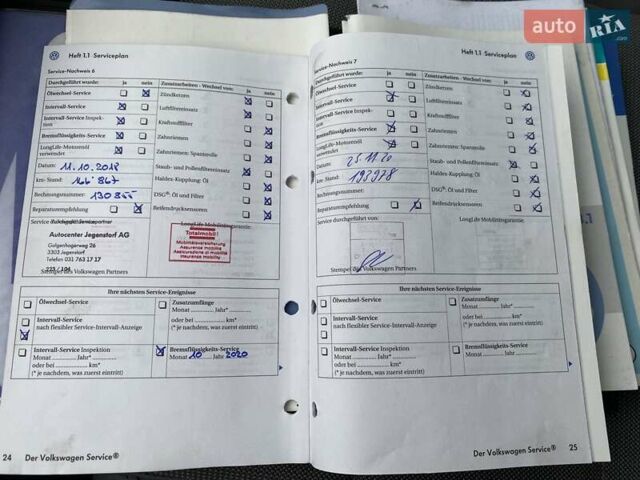 auto RIA.com
Heft 1.1 Serviceplan
Service-Nachweis 6
Durchgeführt wurde: ja nein
Ölwechsel-Service
Intervall-Service
Intervall-Service Inspek-
tion
Bremsflüssigkeits-Service
LongLife-Motorenöl
verwendet
Datum: 11.10.2018
km-Stand: 166'867
Rechnungsnummer: 130855
Reparaturempfehlung
Zusatzarbeiten - Wechsel von: ja nein
Zündkerzen
Luftfiltereinsatz
Kraftstofffilter
Zahnriemen
Zahnriemen: Spannrolle
Staub- und Pollenfiltereinsatz
Haldex-Kupplung: Öl
DSG®: Öl und Filter
Reifendrucksensoren
Autocenter Jegenstorf AG
3303 Jegenstorf
Telefon 031 763 17 17
223 / 104
Stempel des Volkswagen Partners
LongLife Mobilitätsgarantie:
Totalmobil!
Mobilitätsversicherung
Assurance mobilité
Assicurazione di mobilità
Insurance mobility
Ihre nächsten Service-Ereignisse
Ölwechsel-Service
Intervall-Service
nach flexibler Service-Intervall-Anzeige
Intervall-Service Inspektion
Monat ........... Jahr* ...........
oder bei ........... km*
(* je nachdem, was zuerst eintritt)
Zusatzumfänge
Monat ........... Jahr* ...........
oder bei ........... km*
(* je nachdem, was zuerst eintritt)
Bremsflüssigkeits-Service
Monat 10 Jahr 2020
24 Der Volkswagen Service®
Heft 1.1 Serviceplan
Service-Nachweis 7
Durchgeführt wurde: ja nein
Ölwechsel-Service
Intervall-Service
Intervall-Service Inspek-
tion
Bremsflüssigkeits-Service
LongLife-Motorenöl
verwendet
Datum: 25.11.20
km-Stand: 193978
Rechnungsnummer:
Reparaturempfehlung
Service durchgeführt von:
Stempel des Volkswagen Partners
Zusatzarbeiten - Wechsel von: ja nein
Zündkerzen
Luftfiltereinsatz
Kraftstofffilter
Zahnriemen
Zahnriemen: Spannrolle
Staub- und Pollenfiltereinsatz
Haldex-Kupplung: Öl
DSG®: Öl und Filter
Reifendrucksensoren
LongLife Mobilitätsgarantie:
Ihre nächsten Service-Ereignisse
Ölwechsel-Service
Intervall-Service
nach flexibler Service-Intervall-Anzeige
Intervall-Service Inspektion
Monat ........... Jahr* ...........
oder bei ........... km*
(* je nachdem, was zuerst eintritt)
Zusatzumfänge
Monat ........... Jahr* ...........
oder bei ........... km*
(* je nachdem, was zuerst eintritt)
Bremsflüssigkeits-Service
Monat ........... Jahr ...........
Der Volkswagen Service® 25